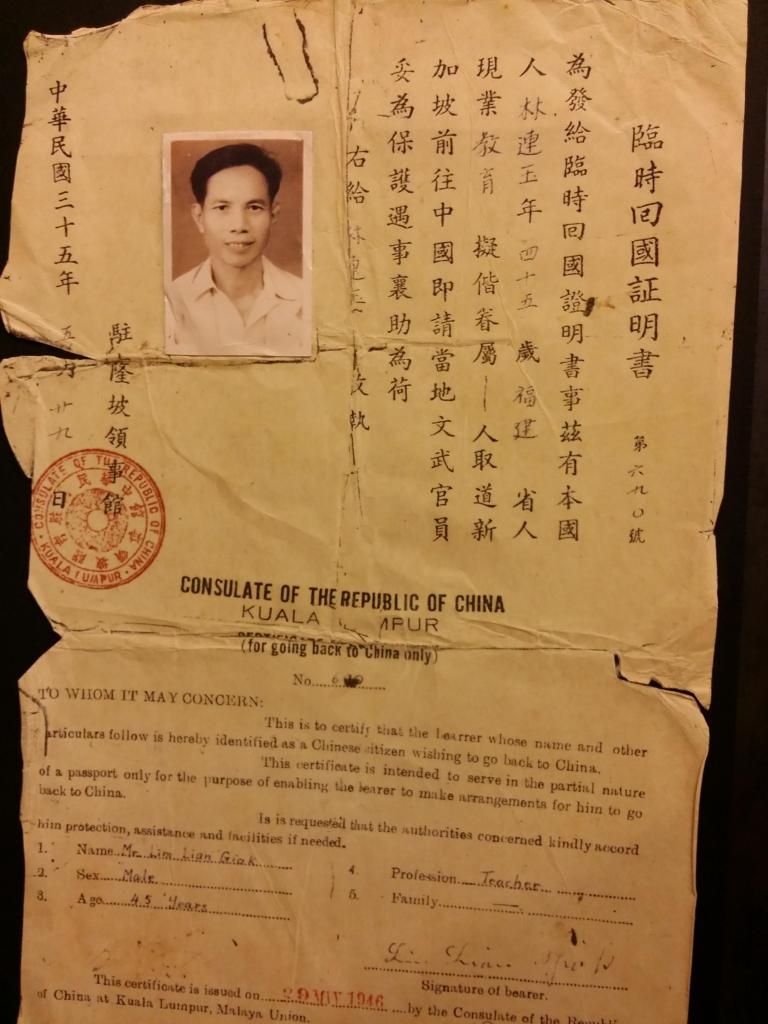 臨時回國証明書
第六九〇號
為發給臨時回國證明書事茲有本國
人林連玉年四十五歲福建省人
現業教育擬偕眷屬一人取道新
加坡前往中國即請當地文武官員
妥為保護遇事襄助為荷
右給林連玉收執
駐隆坡領事館
中華民國三十五年五月廿九日
CONSULATE OF THE REPUBLIC OF CHINA
KUALA LUMPUR
CONSULATE OF THE REPUBLIC OF CHINA
KUALA LUMPUR
(for going back to China only)
No.
TO WHOM IT MAY CONCERN:
This is to certify that the bearrer whose name and other
particulars follow is hereby identified as a Chinese citizen wishing to go back to China.
This certificate is intended to serve in the partial nature
of a passport only for the purpose of enabling the bearer to make arrangements for him to go
back to China.
Is is requested that the authorities concerned kindly accord
him protection, assistance and facilities if needed.
1. Name Mr. Lim Lian Giok
2. Sex Male
3. Age 45 Years
4. Profession Teacher
5. Family —
Lim Lian Giok
Signature of bearer.
This certificate is issued on 29 MAY 1946 by the Consulate of the Republic
of China at Kuala Lumpur, Malaya Union.